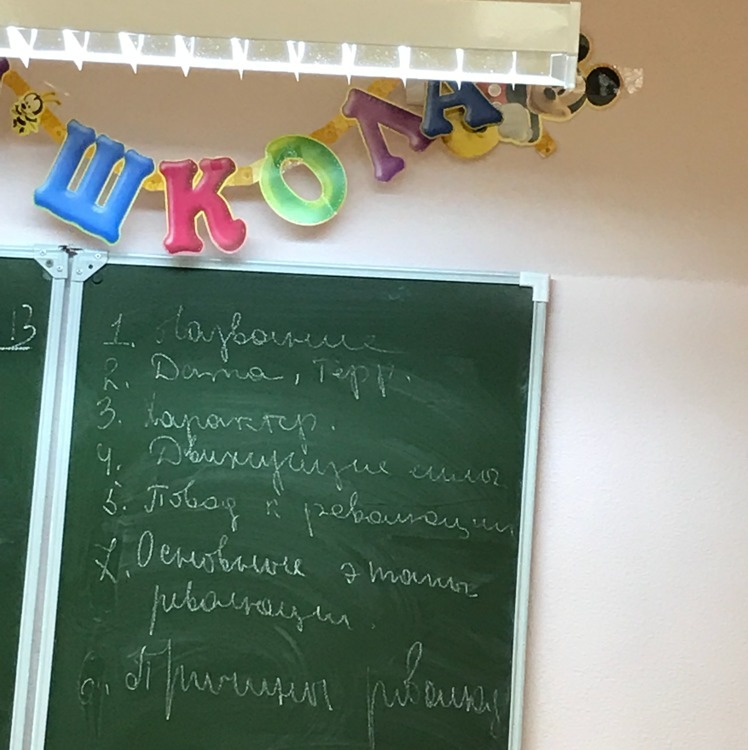 ШКОЛА
13
1. Название
2. Дата, терр.
3. Характер.
4. Движущие силы
5. Повод к революции
7. Основные этапы
революции.
6. Причины